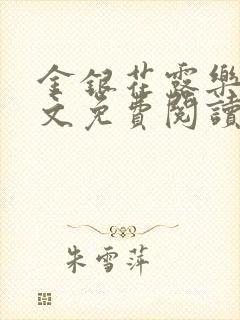 金銀花露樂
文免費閱讀
朱雪萍